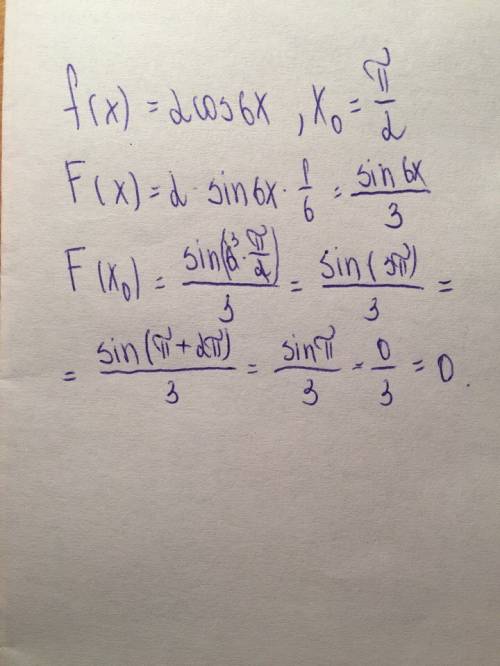 f(x) = 2cos6x , x₀ = π/2
F(x) = 2 · sin6x · 1/6 = sin6x/3
F(x₀) = sin(6³ · π/2)/3 = sin(3π)/3 =
= sin(π + 2π)/3 = sinπ/3 = 0/3 = 0.